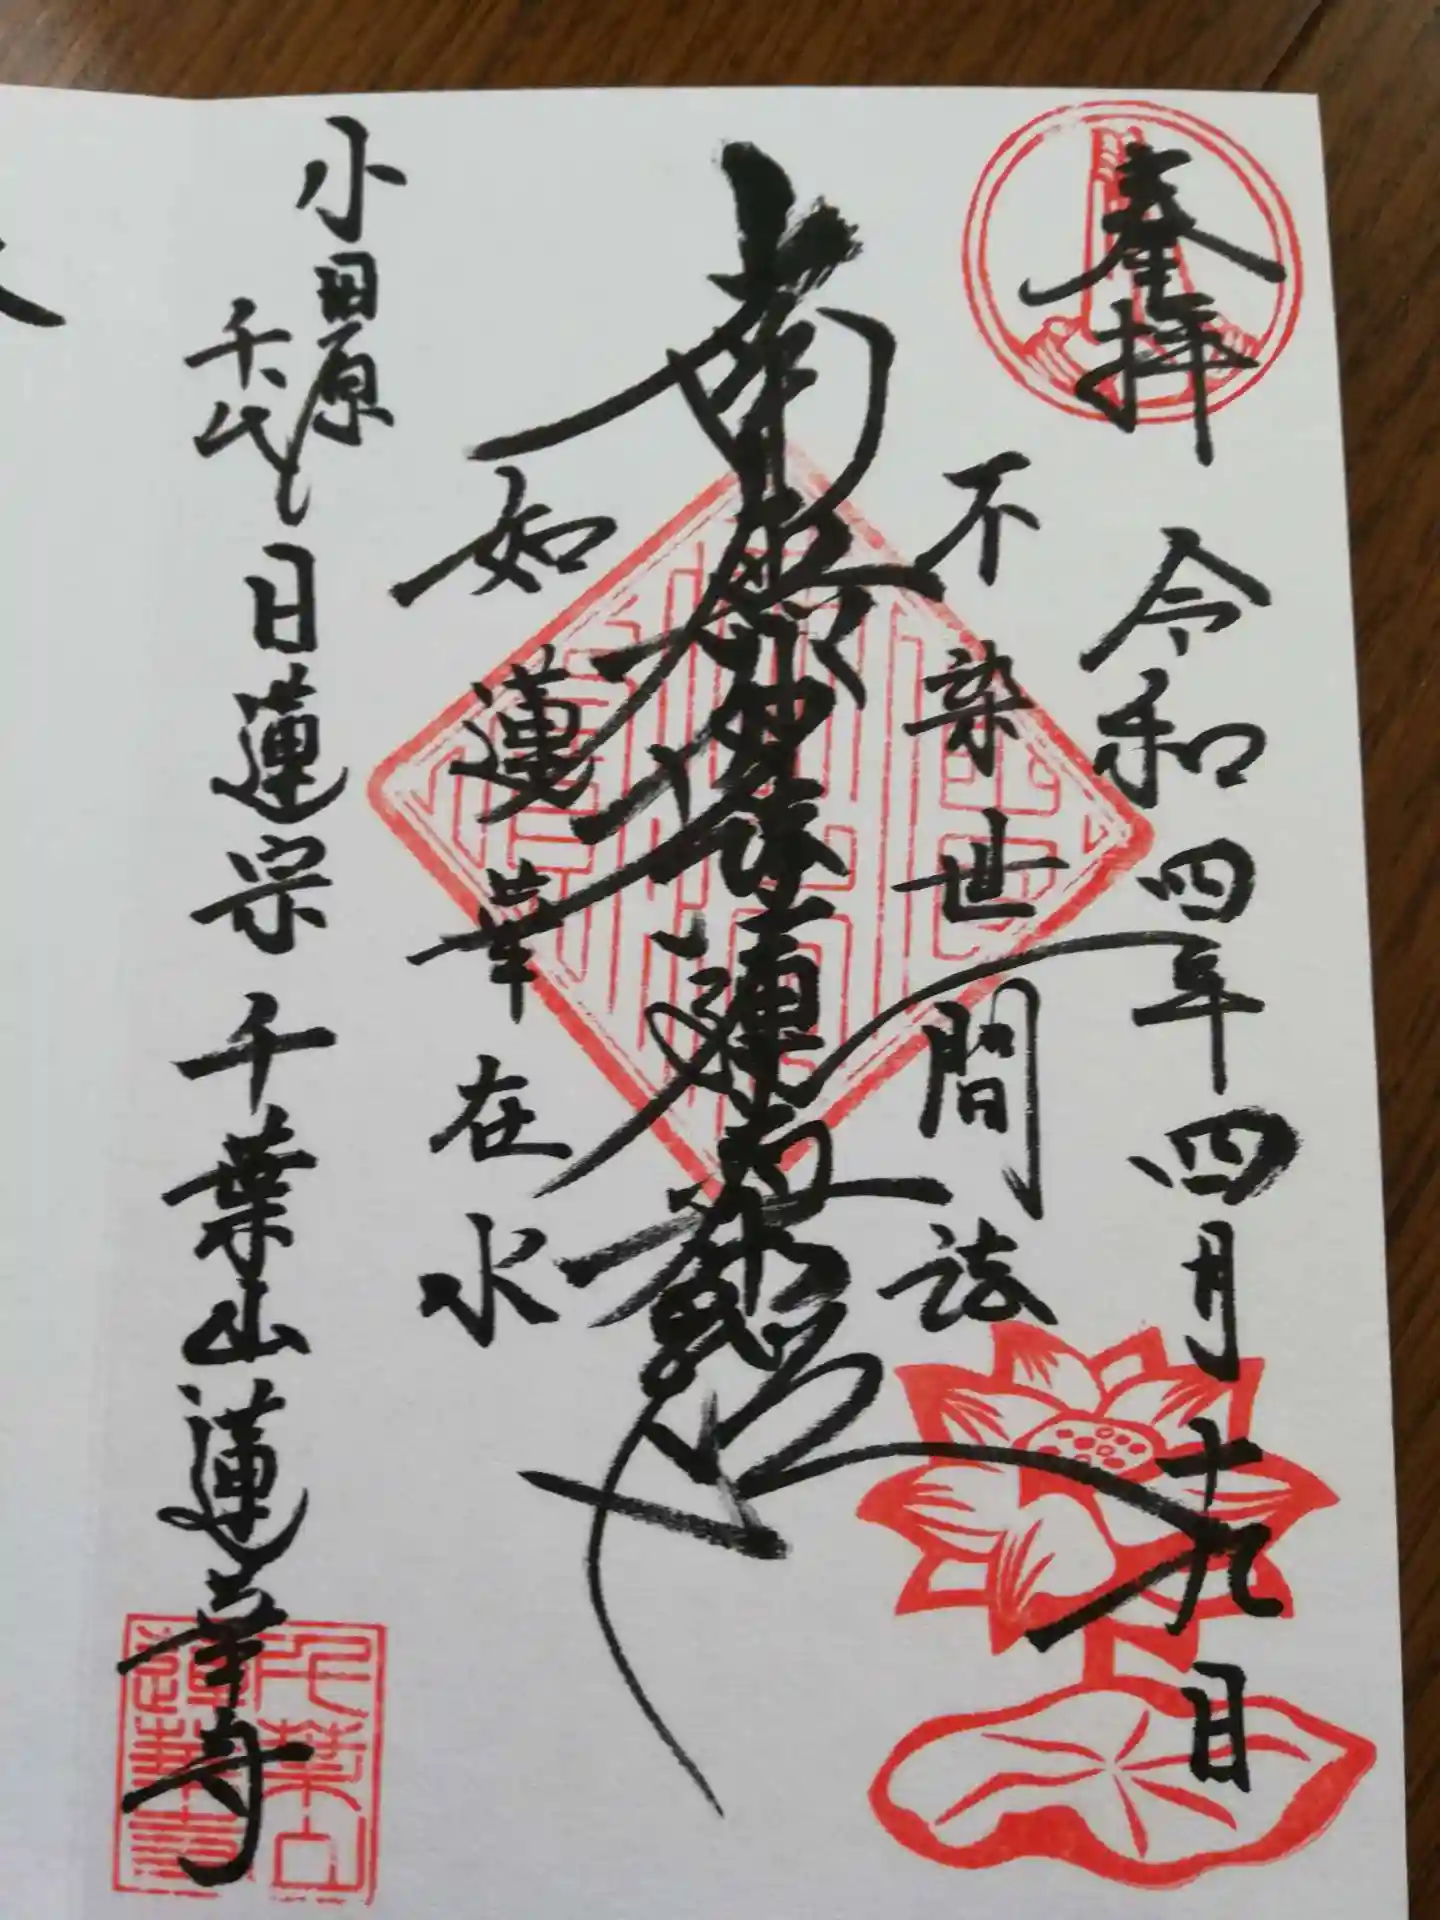 奉拝
令和四年四月十九日
不染世間法
南無妙法蓮華経
如蓮華在水
小田原
千代
日蓮宗 千葉山 蓮華寺